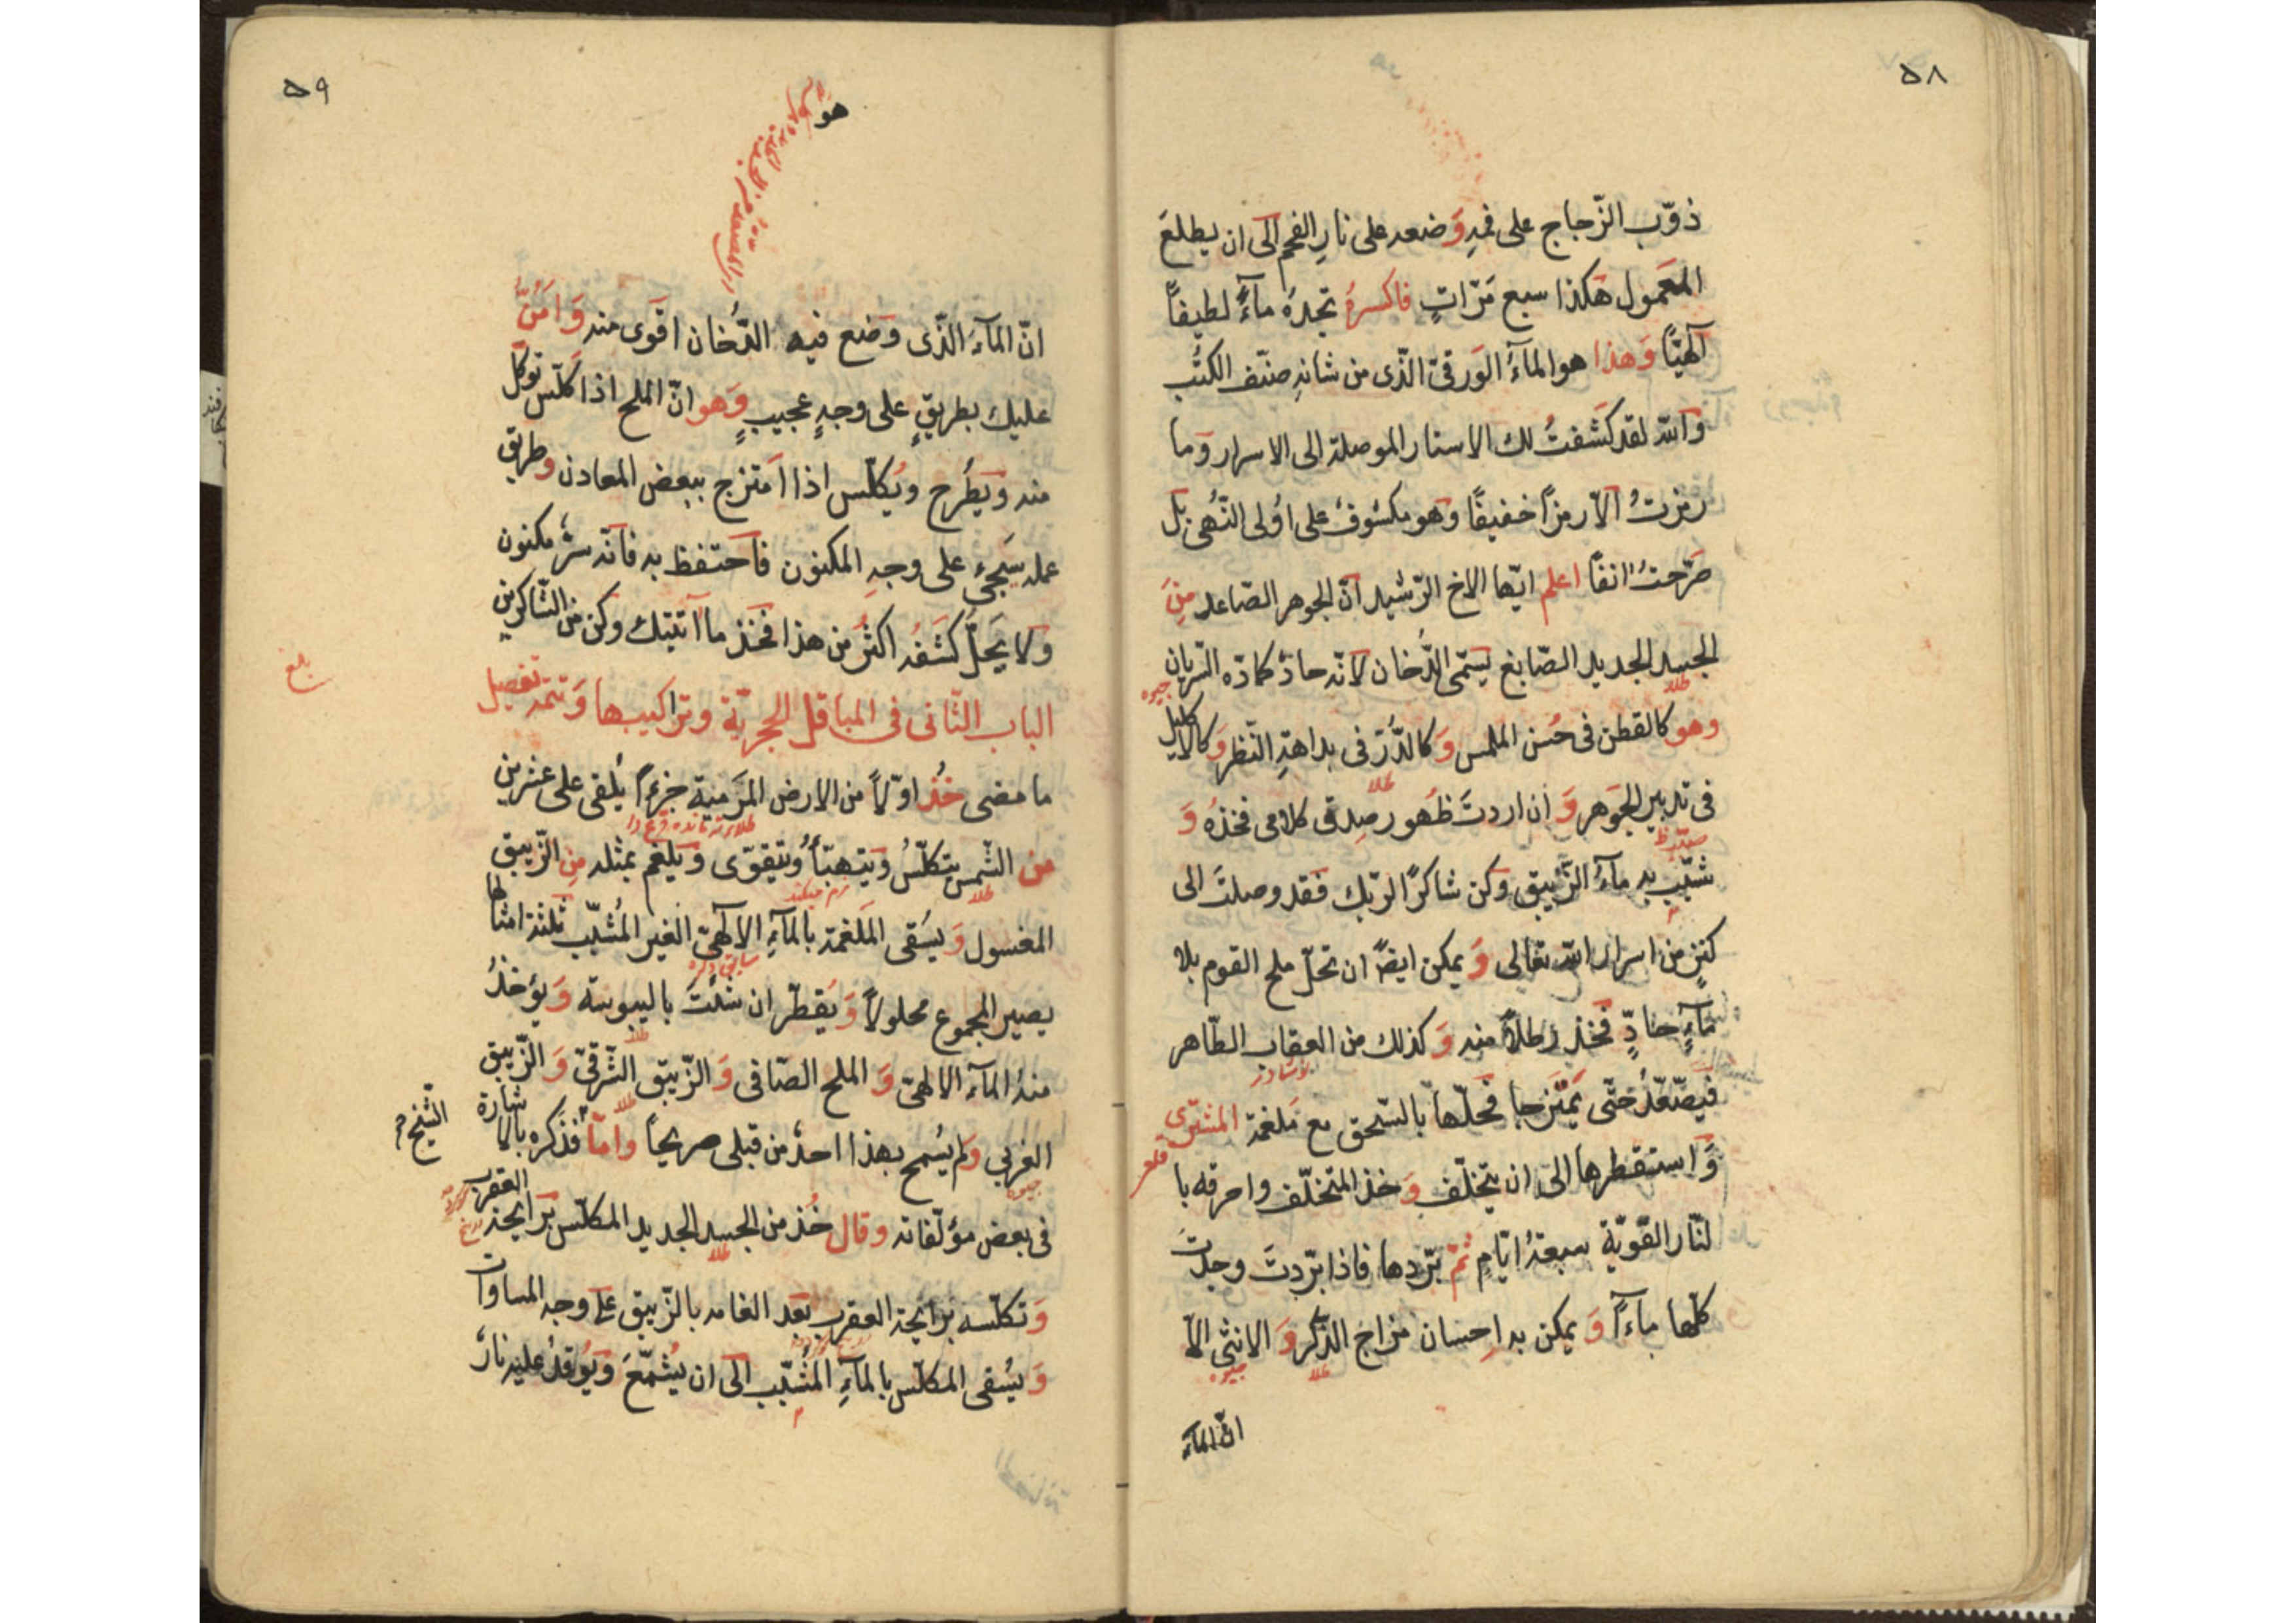 ٥٨
ذوّب الزّجاج على فمهِ وَضعه على نارِ الفحم الى ان يطلعَ
المعَمول هٰكذا سبع مَرّاتٍ فاكسرهُ تجدهُ مآءً لطيفاً
آلهيّاً وَهذا هو المآءُ الوَرقىّ الّذى من شانهِ صنّف الكتُب
وَالله لقد كَشفتُ لك الاستار الموصلة الى الاسرار وَما
رمزتُ الّا رمزاً خفيفًا وَهو مكشوفٌ على اوُلى النّهُى بَل
صَرّحتُ انفاً اعلم ايّها الاخ الرّشيد انّ الجوهر الصّاعد مِنَ
الجسد الجديد الصّابغ يسَمّى الدُّخان لانّه حادّ كمادّه التّريان
طلا
جيوه
وهو كالقطن فى حُسن الملمس وَ كالدُّرّ فى بداهةِ النّظر وَ كالاكليل
فى تدبير الجَوهر وَ ان اردتَ ظهُور صِدقِ كلامى فخذهُ وَ
طلا
شبّب به مآءُ الزّيبق وَكن شاكرًا لربّك فقد وصلتَ الى
كنزٍ من اسرار الله تعالى وَ يمكن ايضًا ان تحلّ ملح القوم بلا
مآءٍ حادٍّ فخذ رطلاً منه وَ كذلك من العقاب الطّاهر
نشادر
فيصّعّدُ حتّى يَمتزجا فحلّها بالسّحق مع مَلغمة المشترى
قلعى
وَ استقطرها الى ان يتخلّف وَ خذ المتخلّف واحرقه با
لنّار القّويّة سبعةُ ايّامٍ ثمّ برّدها فاذا برّدتَ وجدتَ
كلّها مآءاً وَ يمكن به اِحسان مزاج الذّكر وَ الانثى الّا
طلا جيوه
انّ المآءَ
٥٩
هو
انّ المآءَ الّذى وضع فيه الدُّخان اقوَى منه وَ امَنُّ
عليك بطريقٍ على وجهٍ عجيبٍ وَهو انّ الملح اذا كلّس توكّل
منه وَيَطُرح ويُكلّس اذا امتزج ببعض المعادن وطريق
عمله سَيجئ على وجهِ المكنون فاحتفظ به فانّه سرٌّ مكنون
وَلا يَحلّ كشَفُه اكثرُ من هذا فخذ ما اتيتك وَكن من الشّاكرين
بلغ
الباب الثّانى فى المباقل الحجريّة وتراكيبها وَتتمّه تفصيل
ما مضى خُذ اوّلاً من الارض المرَميّة جزءاً يُلقى على عشرين
من الشّمس يتكلّسُ وَيتهبّأُ وَيتقوّى وَيلغم بمثله مِن الزّيبق
طلا نرم ميكند
المغسول وَ يسُقى المَلغمة بالمآءِ الالهىّ الغير المُشبّب ثلثة امثالها
يصير المجموع محلولاً وَ يُقطّر ان شئتَ باليبوسة وَ يؤخذُ
طلا
منهُ المآءَ الالهىّ وَ الملح الصّافى وَ الزّيبق الشّرقىّ وَ الزّيبق
طلا
الغربى وَلم يُسمح بهذا احدٌ من قبلى صريحًا وامّا فذكره بالاشارة
الشّيخ
جيوه
فى بعض مؤلّفاته وقال خُذ من الجسد الجديد المكلّس برايحة العقرب
طلا
وَ تكلّسه برايحة العقرب بعد الغامه بالزّيبق على وجه المساوات
وَ يُسقى المكلّس بالمآءِ المُشبّب الى ان يُشمّعَ وَ يُوقدُ عليه نارٌ